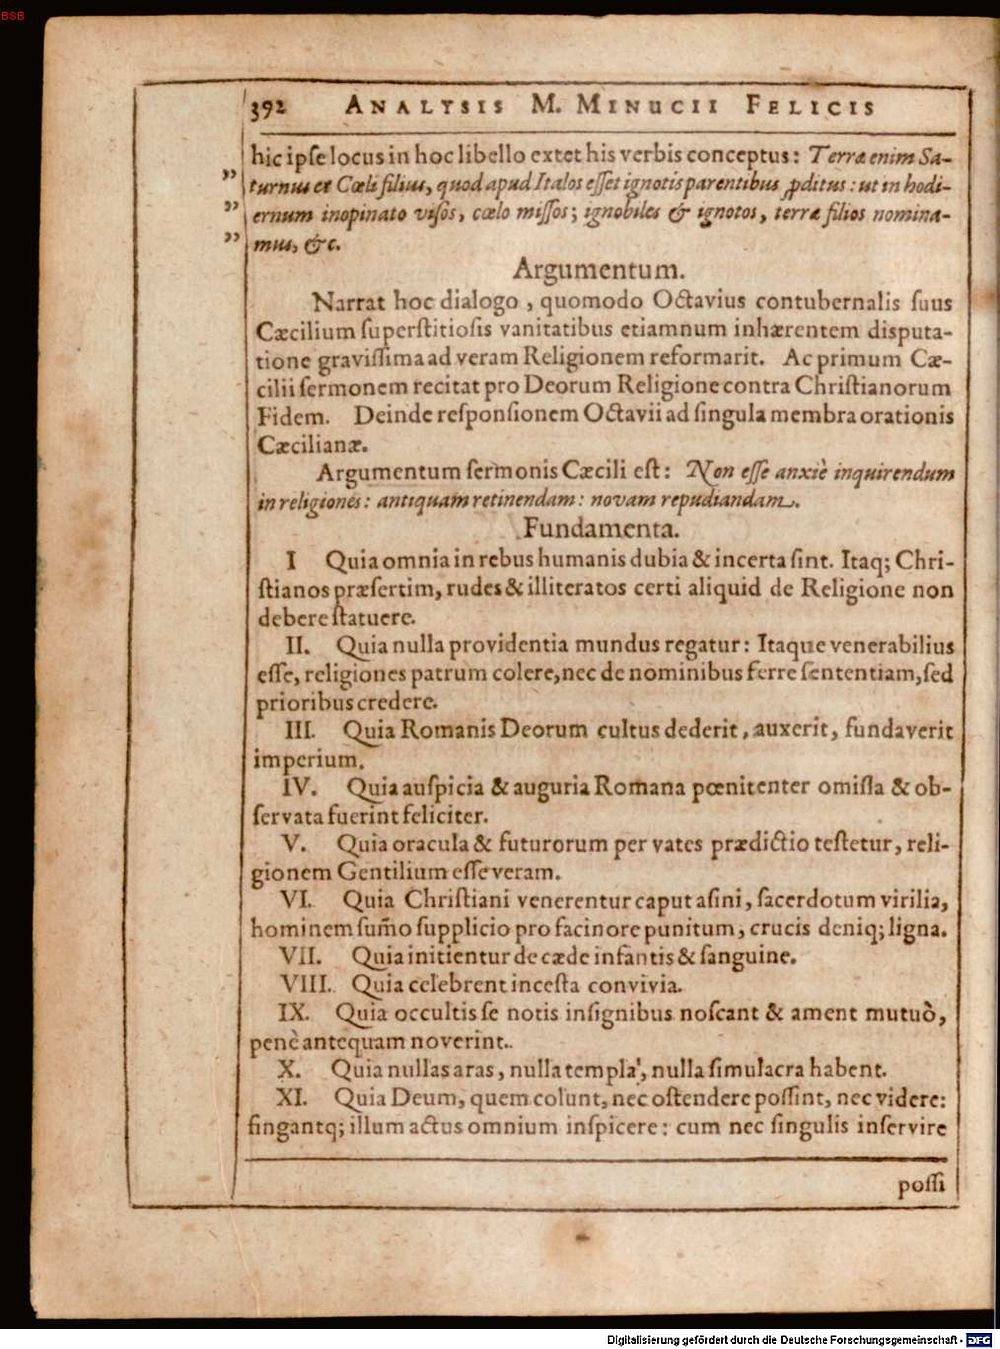 BSB
392 ANALYSIS M. MINUCII FELICIS
hic ipſe locus in hoc libello extet his verbis conceptus: Terræ enim Sa-
turnus et Cœli filius, quod apud Italos eſſet ignotis parentibus ꝓditus: ut in hodi-
ernum inopinato viſos, cœlo miſſos; ignobiles & ignotos, terræ filios nomina-
mus, &c.
Argumentum.
Narrat hoc dialogo, quomodo Octavius contubernalis ſuus
Cæcilium ſuperſtitioſis vanitatibus etiamnum inhærentem disputa-
tione graviſſima ad veram Religionem reformarit. Ac primum Cæ-
cilii ſermonem recitat pro Deorum Religione contra Chriſtianorum
Fidem. Deinde reſponſionem Octavii ad ſingula membra orationis
Cæcilianæ.
Argumentum ſermonis Cæcili eſt: Non eſſe anxiè inquirendum
in religiones: antiquam retinendam: novam repudiandam.
Fundamenta.
I Quia omnia in rebus humanis dubia & incerta ſint. Itaq; Chri-
ſtianos præſertim, rudes & illiteratos certi aliquid de Religione non
debere ſtatuere.
II. Quia nulla providentia mundus regatur: Itaque venerabilius
eſſe, religiones patrum colere, nec de nominibus ferre ſententiam, ſed
prioribus credere.
III. Quia Romanis Deorum cultus dederit, auxerit, fundaverit
imperium.
IV. Quia auſpicia & auguria Romana pœnitenter omiſſa & ob-
ſervata fuerint feliciter.
V. Quia oracula & futurorum per vates prædictio teſtetur, reli-
gionem Gentilium eſſe veram.
VI. Quia Chriſtiani venerentur caput aſini, ſacerdotum virilia,
hominem ſum̃o ſupplicio pro facinore punitum, crucis deniq; ligna.
VII. Quia initientur de cæde infantis & ſanguine.
VIII. Quia celebrent inceſta convivia.
IX. Quia occultis ſe notis inſignibus noſcant & ament mutuò,
penè antequam noverint.
X. Quia nullas aras, nulla templa, nulla ſimulacra habent.
XI. Quia Deum, quem colunt, nec oſtendere poſſint, nec videre:
fingantq; illum actus omnium inſpicere: cum nec ſingulis inſervire
poſſi
Digitalisierung gefördert durch die Deutsche Forschungsgemeinschaft - DFG